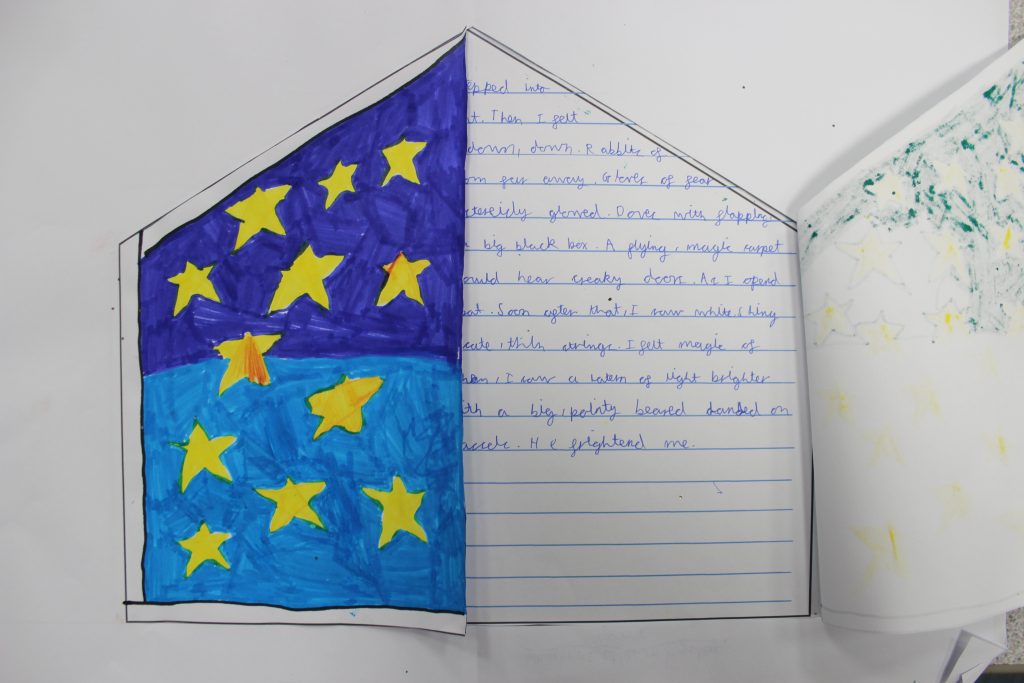 epped into
t. Then I felt
down, down. Rabbits of
om far away. Gloves of fear
stereidy glowed. Doves with flapping
a big black box. A flying, magic carpet
ould hear creaky doors. As I opend
oat. Soon after that, I saw white, shiny
icate, thin strings. I felt magic of
hen, I saw a latern of light brighter
ith a big, pointy beared danded on
accele. He frightend me.